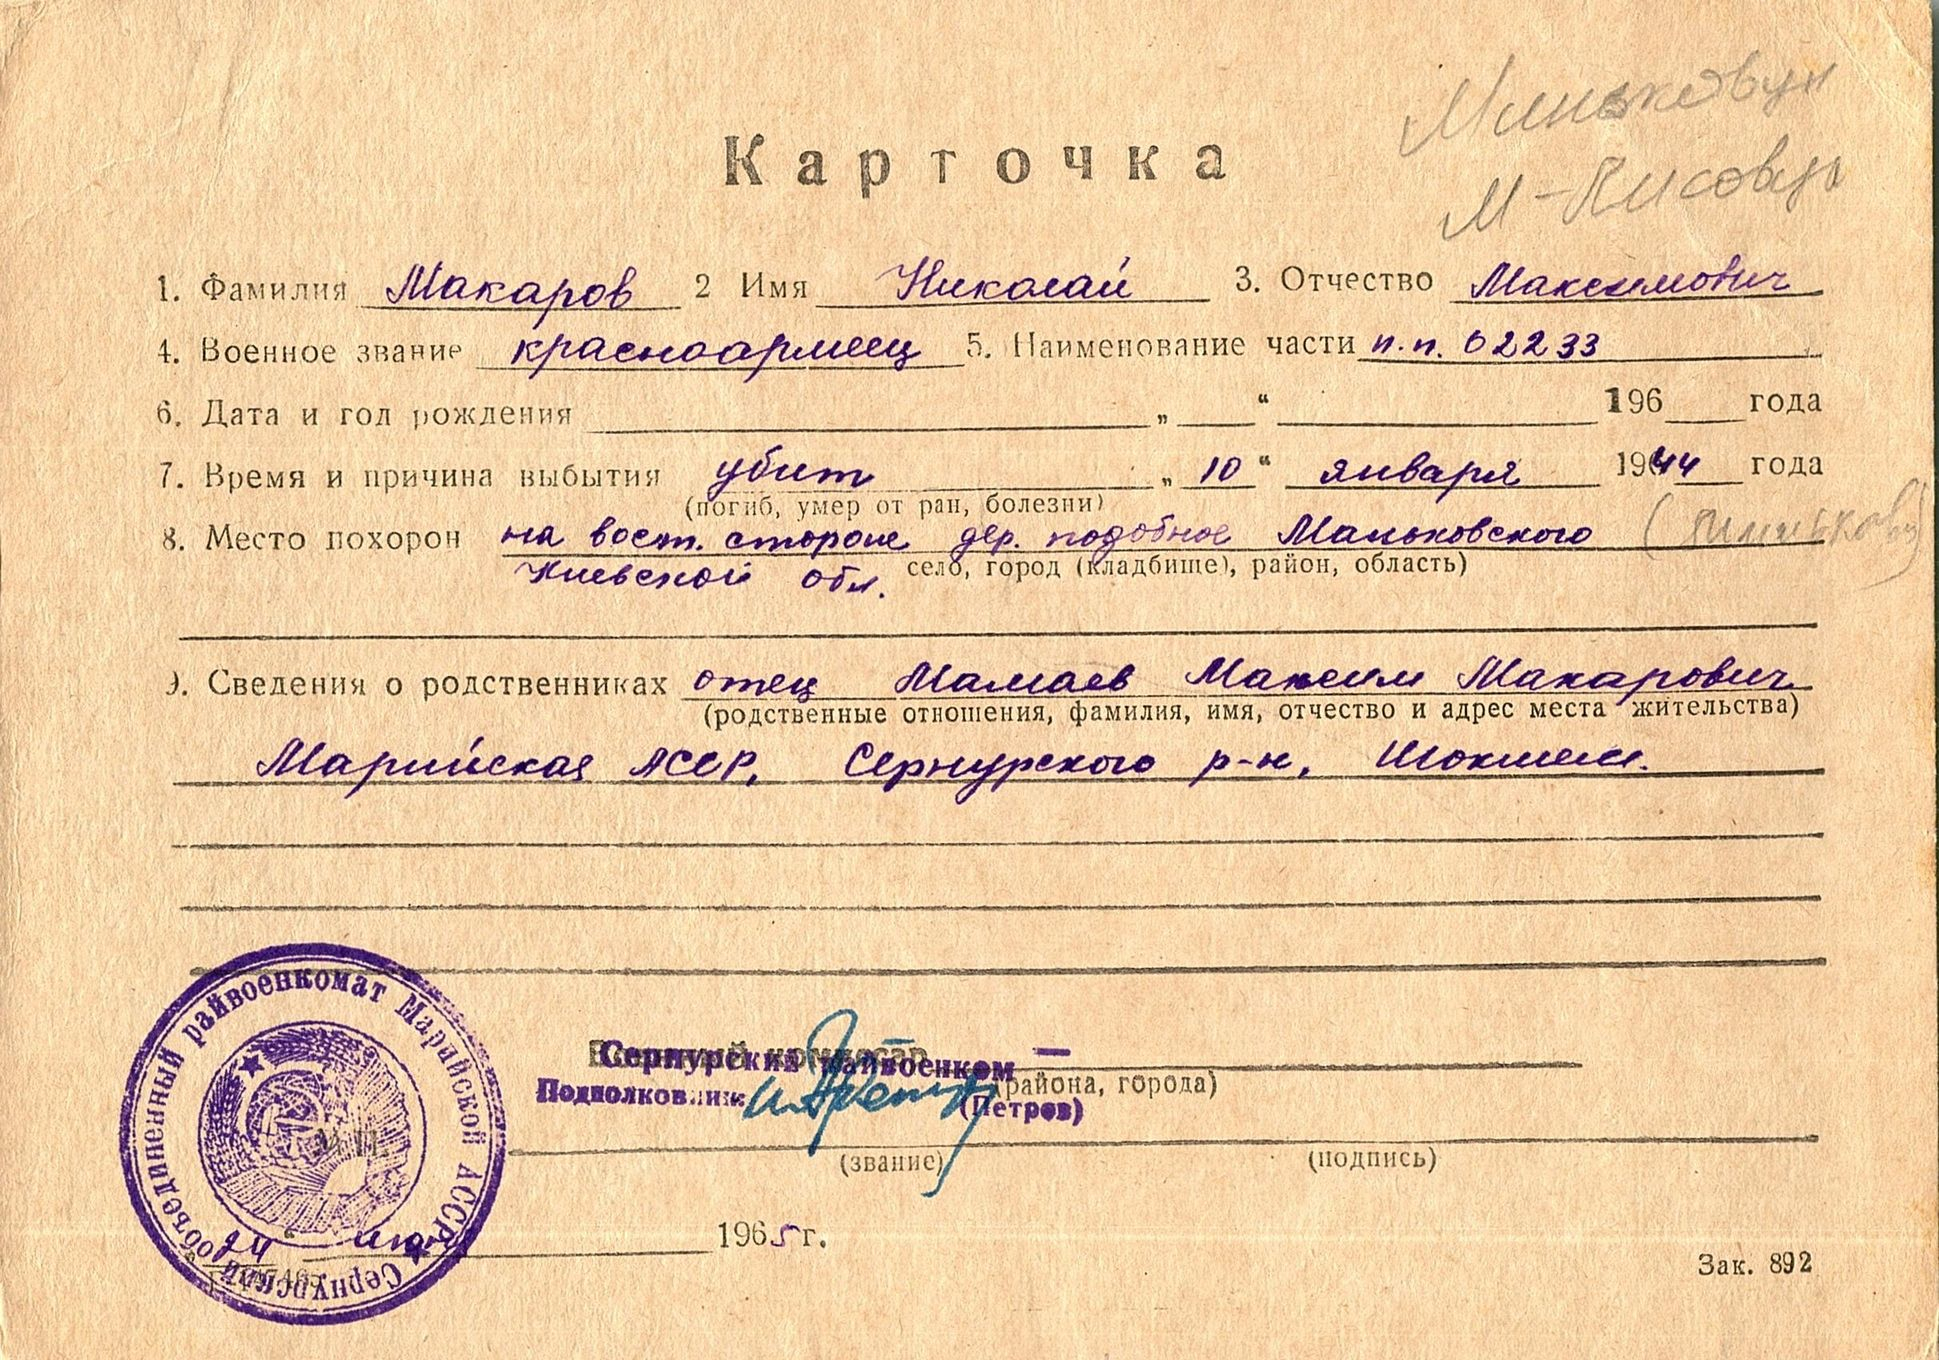 Карточка
1. Фамилия Макаров 2 Имя Николай 3. Отчество Максимович
4. Военное звание красноармеец 5. Наименование части п.п. 02233
6. Дата и год рождения „ “ 196 года
7. Время и причина выбытия убит „ 10 “ января 1944 года
(погиб, умер от ран, болезни)
8. Место похорон на вост. стороне дер. подобное Маньковского
Киевской обл. село, город (кладбище), район, область)
9. Сведения о родственниках отец Мамаев Максим Макарович
(родственные отношения, фамилия, имя, отчество и адрес места жительства)
Марийская АССР, Сернурского р-н,
Военный комиссар
Сернурский райвоенком —
(района, города)
Подполковник (Петров)
(звание) (подпись)
М. П.
Сернурский объединенный райвоенкомат Марийской АССР
24 1965 г.
Зак. 892